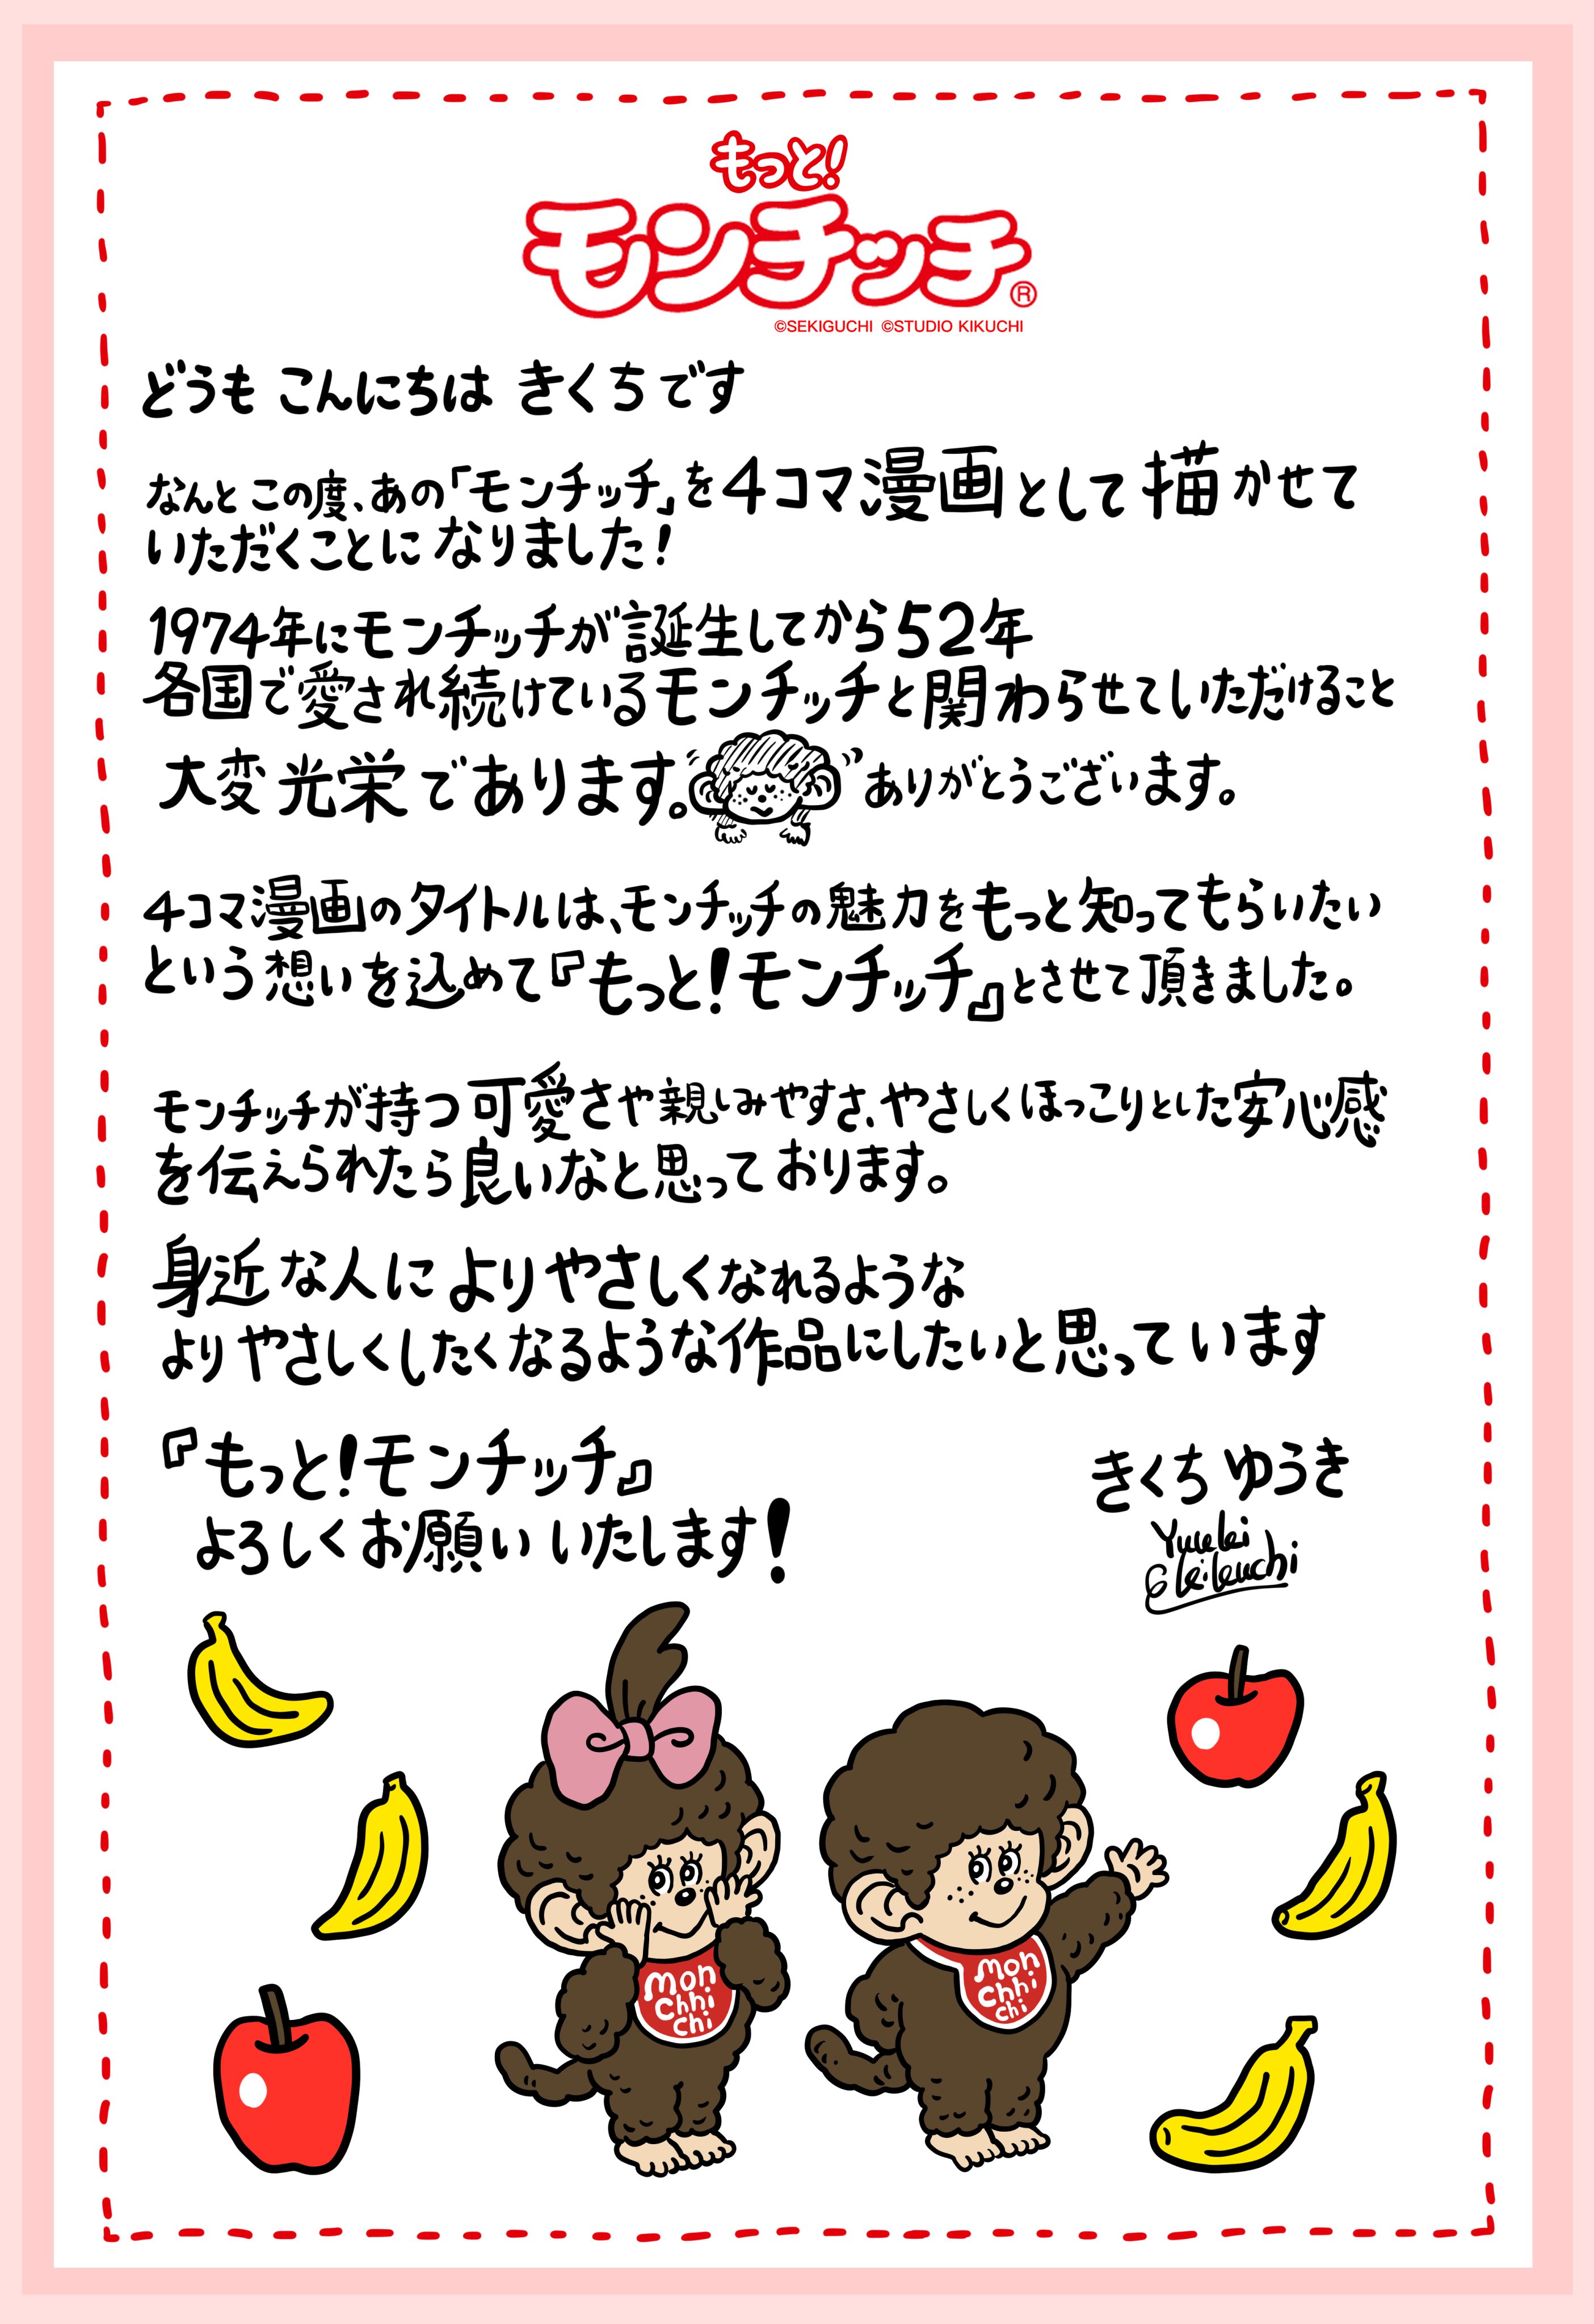 もっと!
モンチッチ®
©SEKIGUCHI ©STUDIO KIKUCHI
どうも こんにちは きくちです
なんと この度、あの「モンチッチ」を4コマ漫画として描かせて
いただくことになりました!
1974年にモンチッチが誕生してから52年
各国で愛され続けているモンチッチと関わらせていただけること
大変光栄であります。ありがとうございます。
4コマ漫画のタイトルは、モンチッチの魅力をもっと知ってもらいたい
という想いを込めて『もっと!モンチッチ』とさせて頂きました。
モンチッチが持つ可愛さや親しみやすさ、やさしくほっこりとした安心感
を伝えられたら良いなと思っております。
身近な人によりやさしくなれるような
よりやさしくしたくなるような作品にしたいと思っています
『もっと!モンチッチ』
よろしくお願いいたします!
きくち ゆうき
Yuuki
Kikuchi
Mon
chhi
chi
Mon
chhi
chi